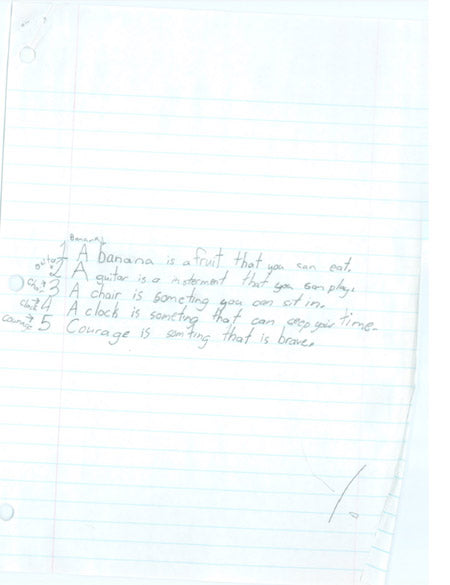 Banana
1 A banana is a fruit that you can eat.
guitar 2 A guitar is a insterment that you can play.
chair 3 A chair is someting you can sit in.
4 A clock is someting that can ceep your time.
courage 5 Courage is somting that is brave.